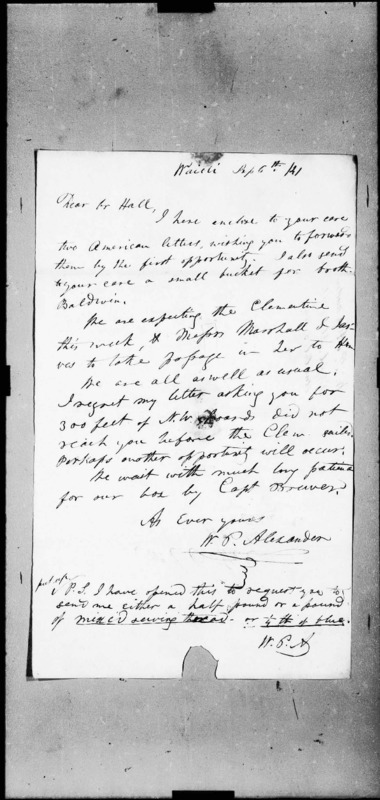 Waioli Sept 6th /41
Dear Br Hall,
I here enclose to your care
two American letters, wishing you to forward
them by the first opportunity. I also send
to your care a small bucket for broth.
Baldwin.
We are expecting the Clementine
this week & Messrs Marshall & Jar-
ves to take passage in her to Hon
We are all as well as usual.
I regret my letter asking you for
300 feet of N.W. boards did not
reach you before the Clem. sailed.
Perhaps another opportunity will occur.
We wait with much long patience
for our box by Capt Brewer.
As Ever yours
W. P. Alexander
P.S. I have opened this to request you to
send me either a half pound or a pound
of mixed sewing thread. or ½ lb of blue.
W. P. A